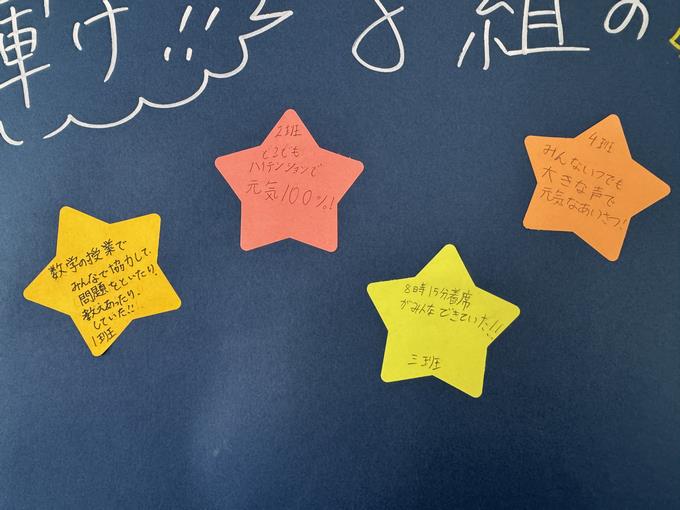 輝け!!!
8組の
2班
どうでも
ハイテンションで
元気100%!
4班
みんないつでも
大きな声で
元気なあいさつ!
数学の授業で
みんなで協力して、
問題をといたり、
教えあったり、
していた!!
1班
8時15分着席
がみんなできていた!!
三班